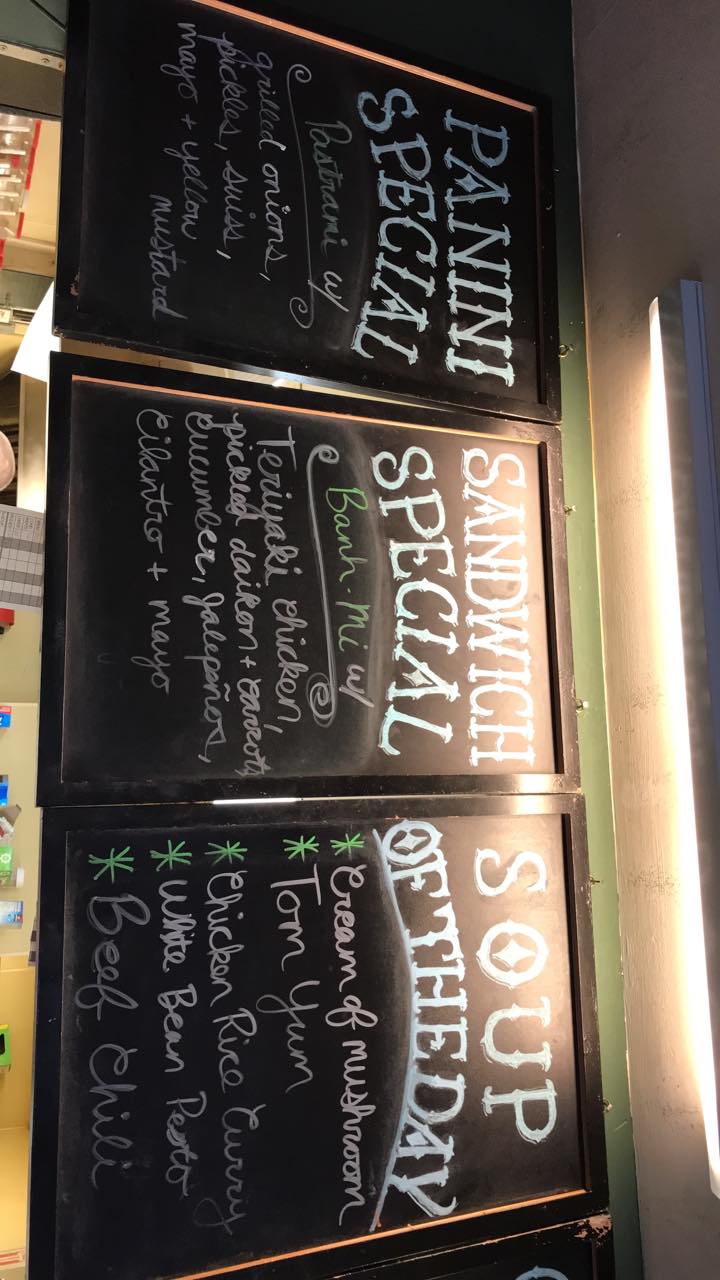 PANINI
SPECIAL
Pastrami w/
grilled onions,
pickles, swiss,
mayo + yellow
mustard
SANDWICH
SPECIAL
Banh-Mi w/
Teriyaki chicken,
pickled daikon + carrots,
cucumber, jalepeños,
cilantro + mayo
SOUP
OF THE DAY
* Cream of mushroom
* Tom Yum
* Chicken Rice Curry
* White Bean Pesto
* Beef Chili